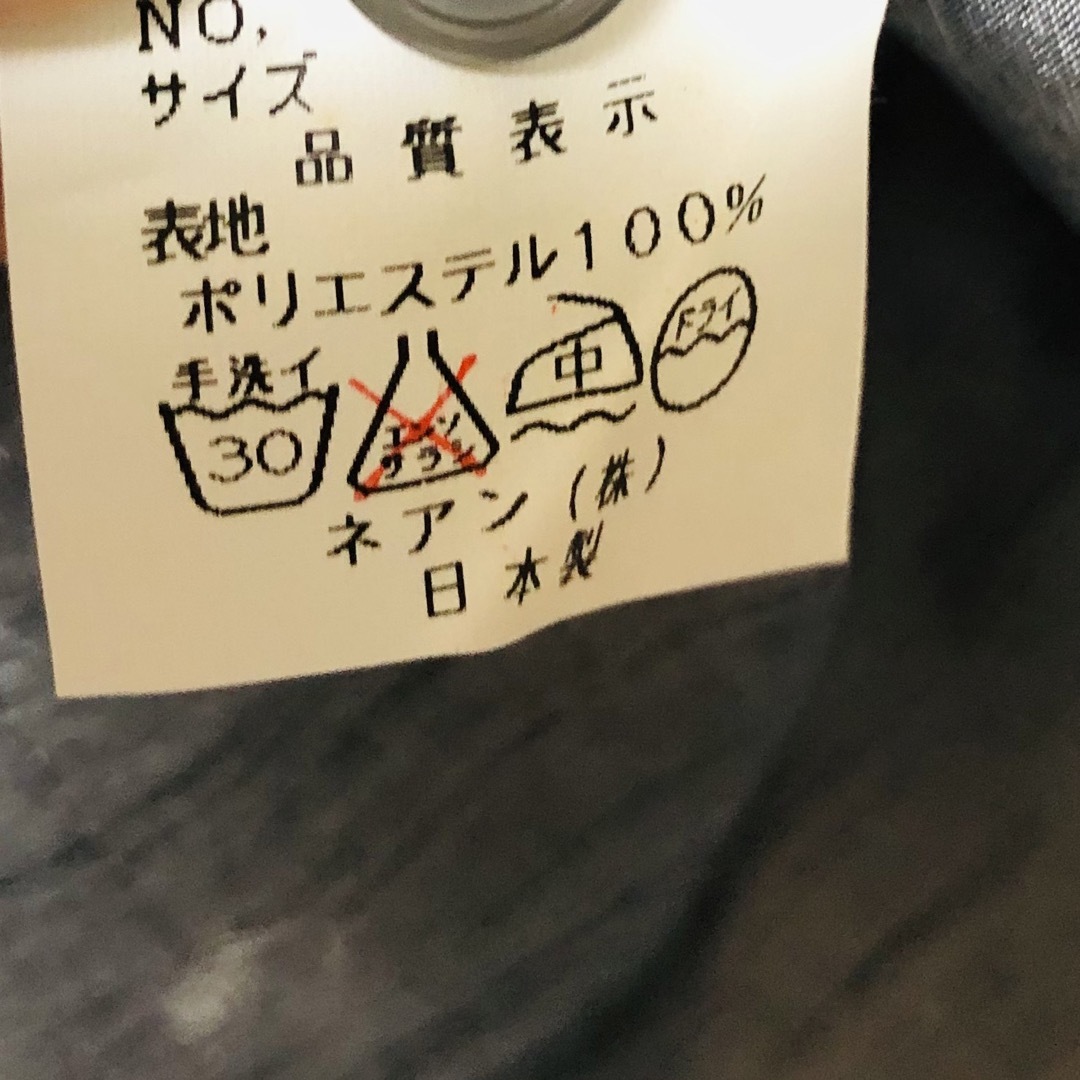 NO,
サイズ
品質表示
表地
ポリエステル100%
手洗イ
30
エンソ
サラシ
中
ドライ
ネアン(株)
日本製